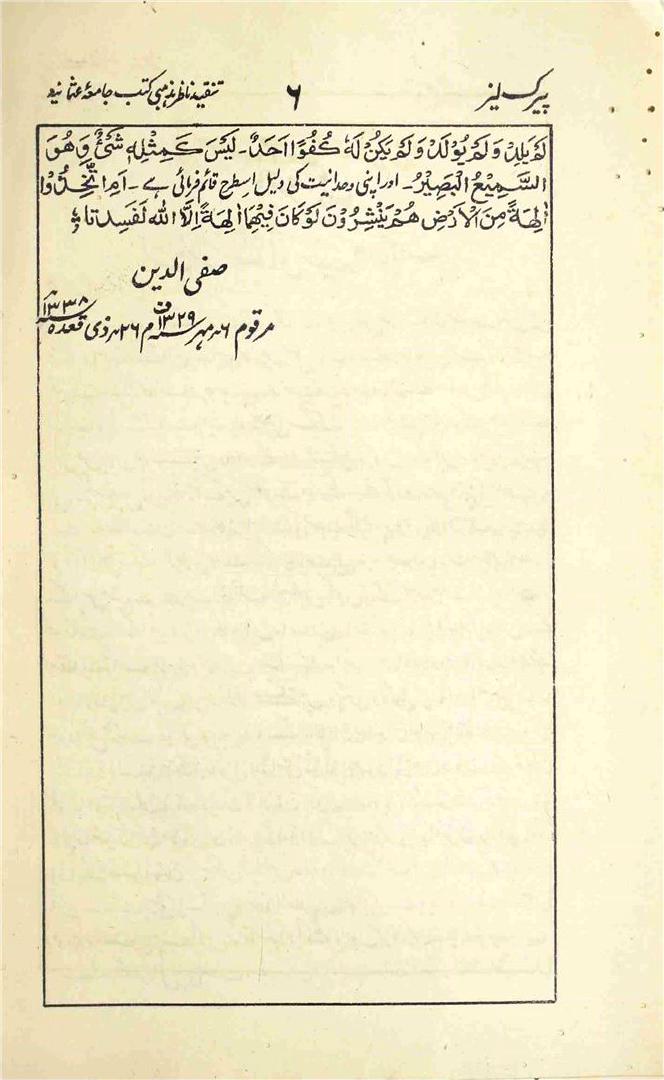 پیرکلیز ۶ تنقید ناظر مذہبی کتب جامعۂ عثمانیہ
لَمْ یَلِدْ وَلَمْ یُوْلَدْ وَلَمْ یَکُنْ لَہٗ کُفُوًا اَحَدٌ۔ لَیْسَ کَمِثْلِہٖ شَیْءٌ وَھُوَ
السَّمِیْعُ الْبَصِیْرُ۔ اور اپنی وحدانیت کی دلیل اسطرح قائم فرمائی ہے۔ اَمِ اتَّخَذُوْا
اٰلِھَۃً مِنَ الْاَرْضِ ھُمْ یَنْشِرُوْنَ لَوْکَانَ فِیْھِمَا اٰلِھَۃٌ اِلَّا اللّٰہُ لَفَسَدَتَا
صفی الدین
مرقوم ۶؍ مہر ۱۳۲۹ ف م ۲۶؍ ذی قعدہ ۱۳۳۸